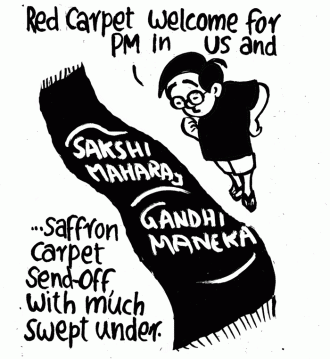 Red Carpet welcome for
PM in US and
SAKSHI
MAHARAJ
GANDHI
MANEKA
...saffron
carpet
send-off,
with much
swept under.